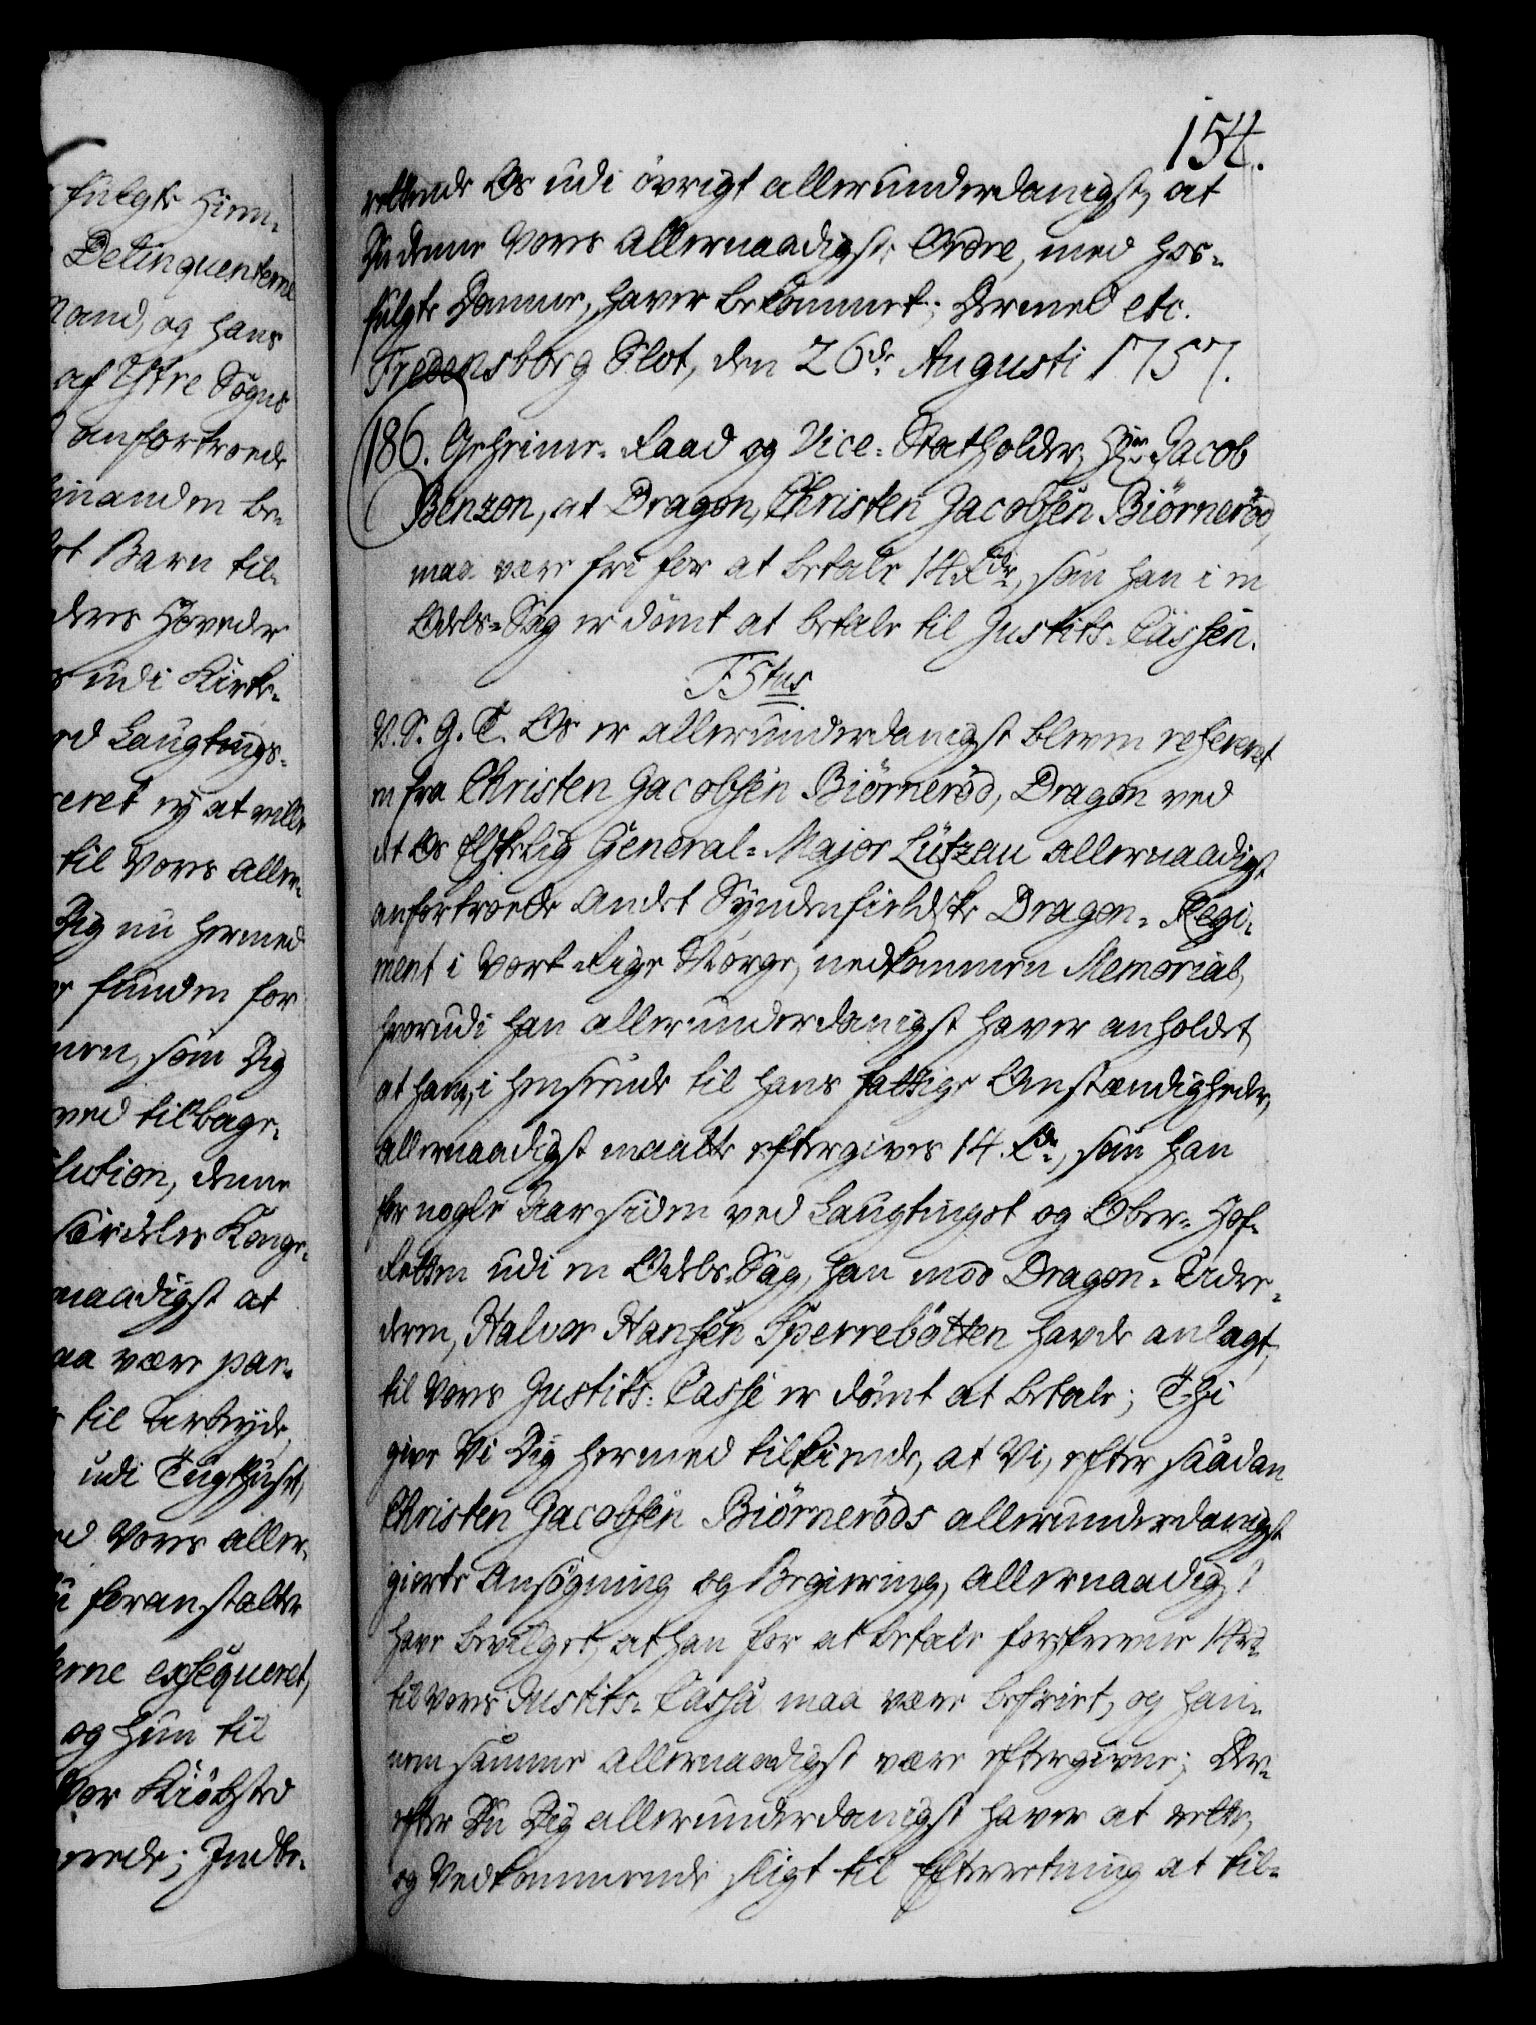 fulgte Hiem-
Delinquenterne
Mand, og hans
af Ystre Sogns
anfortroede
be-
Barn til-
deres Hoveder
udi Kirke-
Laugtings-
eret ey at ville
til Vores aller-
Dig nu hermed
funden for
som Dig
ved tilbage-
lution, denne
særdeles Konge-
naadigst at
maa være par-
til Arbeyde,
udi Tugthuset,
Vores aller-
foranstalte
erne exseqveret,
og hun til
vor Kiöbsted
Indbe-
154.
rettende Os udi övrigt allerunderdanigst, at
Du denne Vores allernaadigste Ordre, med hos-
fulgte Domme, haver bekommet; Dermed etc.
Fredensborg Slot, den 26de Augusti 1757.
186. Geheime-Raad og Vice-Statholder, Hr. Jacob
Benzon, at Dragon, Christen Jacobsen Biörneröd,
maa være fri for at betale 14 Rdr, som han i en
Odels-Sag er dömt at betale til Justits-Cassen.
F5tus
V. S. G. T. Os er allerunderdanigst bleven refereret
en fra Christen Jacobsen Biörneröd, Dragon ved
det Os Elskelig General-Major Lützau allernaadigst
anfortroede andet Syndenfieldske Dragon-Regi-
ment i Vort Rige Norge, nedkommen Memorial,
hvorudi han allerunderdanigst haver anholdet,
at ham, i henseende til hans fattige Omstændigheder,
allernaadigst maatte eftergives 14 Rdr, som han
for nogle Aar siden ved Laugtinget og Ober-Hof-
Retten udi en Odels-Sag, han mod Dragon-Udre-
deren, Halvor Hansen Sperrebötten havde anlagt,
til Vores Justits-Casse er dömt at betale; Thi
give Vi Dig hermed tilkiende, at Vi, efter saadan
Christen Jacobsen Biörneröds allerunderdanigst
giorte Ansögning og Begiering, allernaadigst
have bevilget, at han for at betale forskrevne 14 Rdr
til Vores Justits-Cassa maa være befriet, og han-
nem samme allernaadigst være eftergivne; Der-
efter Du Dig allerunderdanigst haver at rette,
og Vedkommende sligt til Efterretning at til-